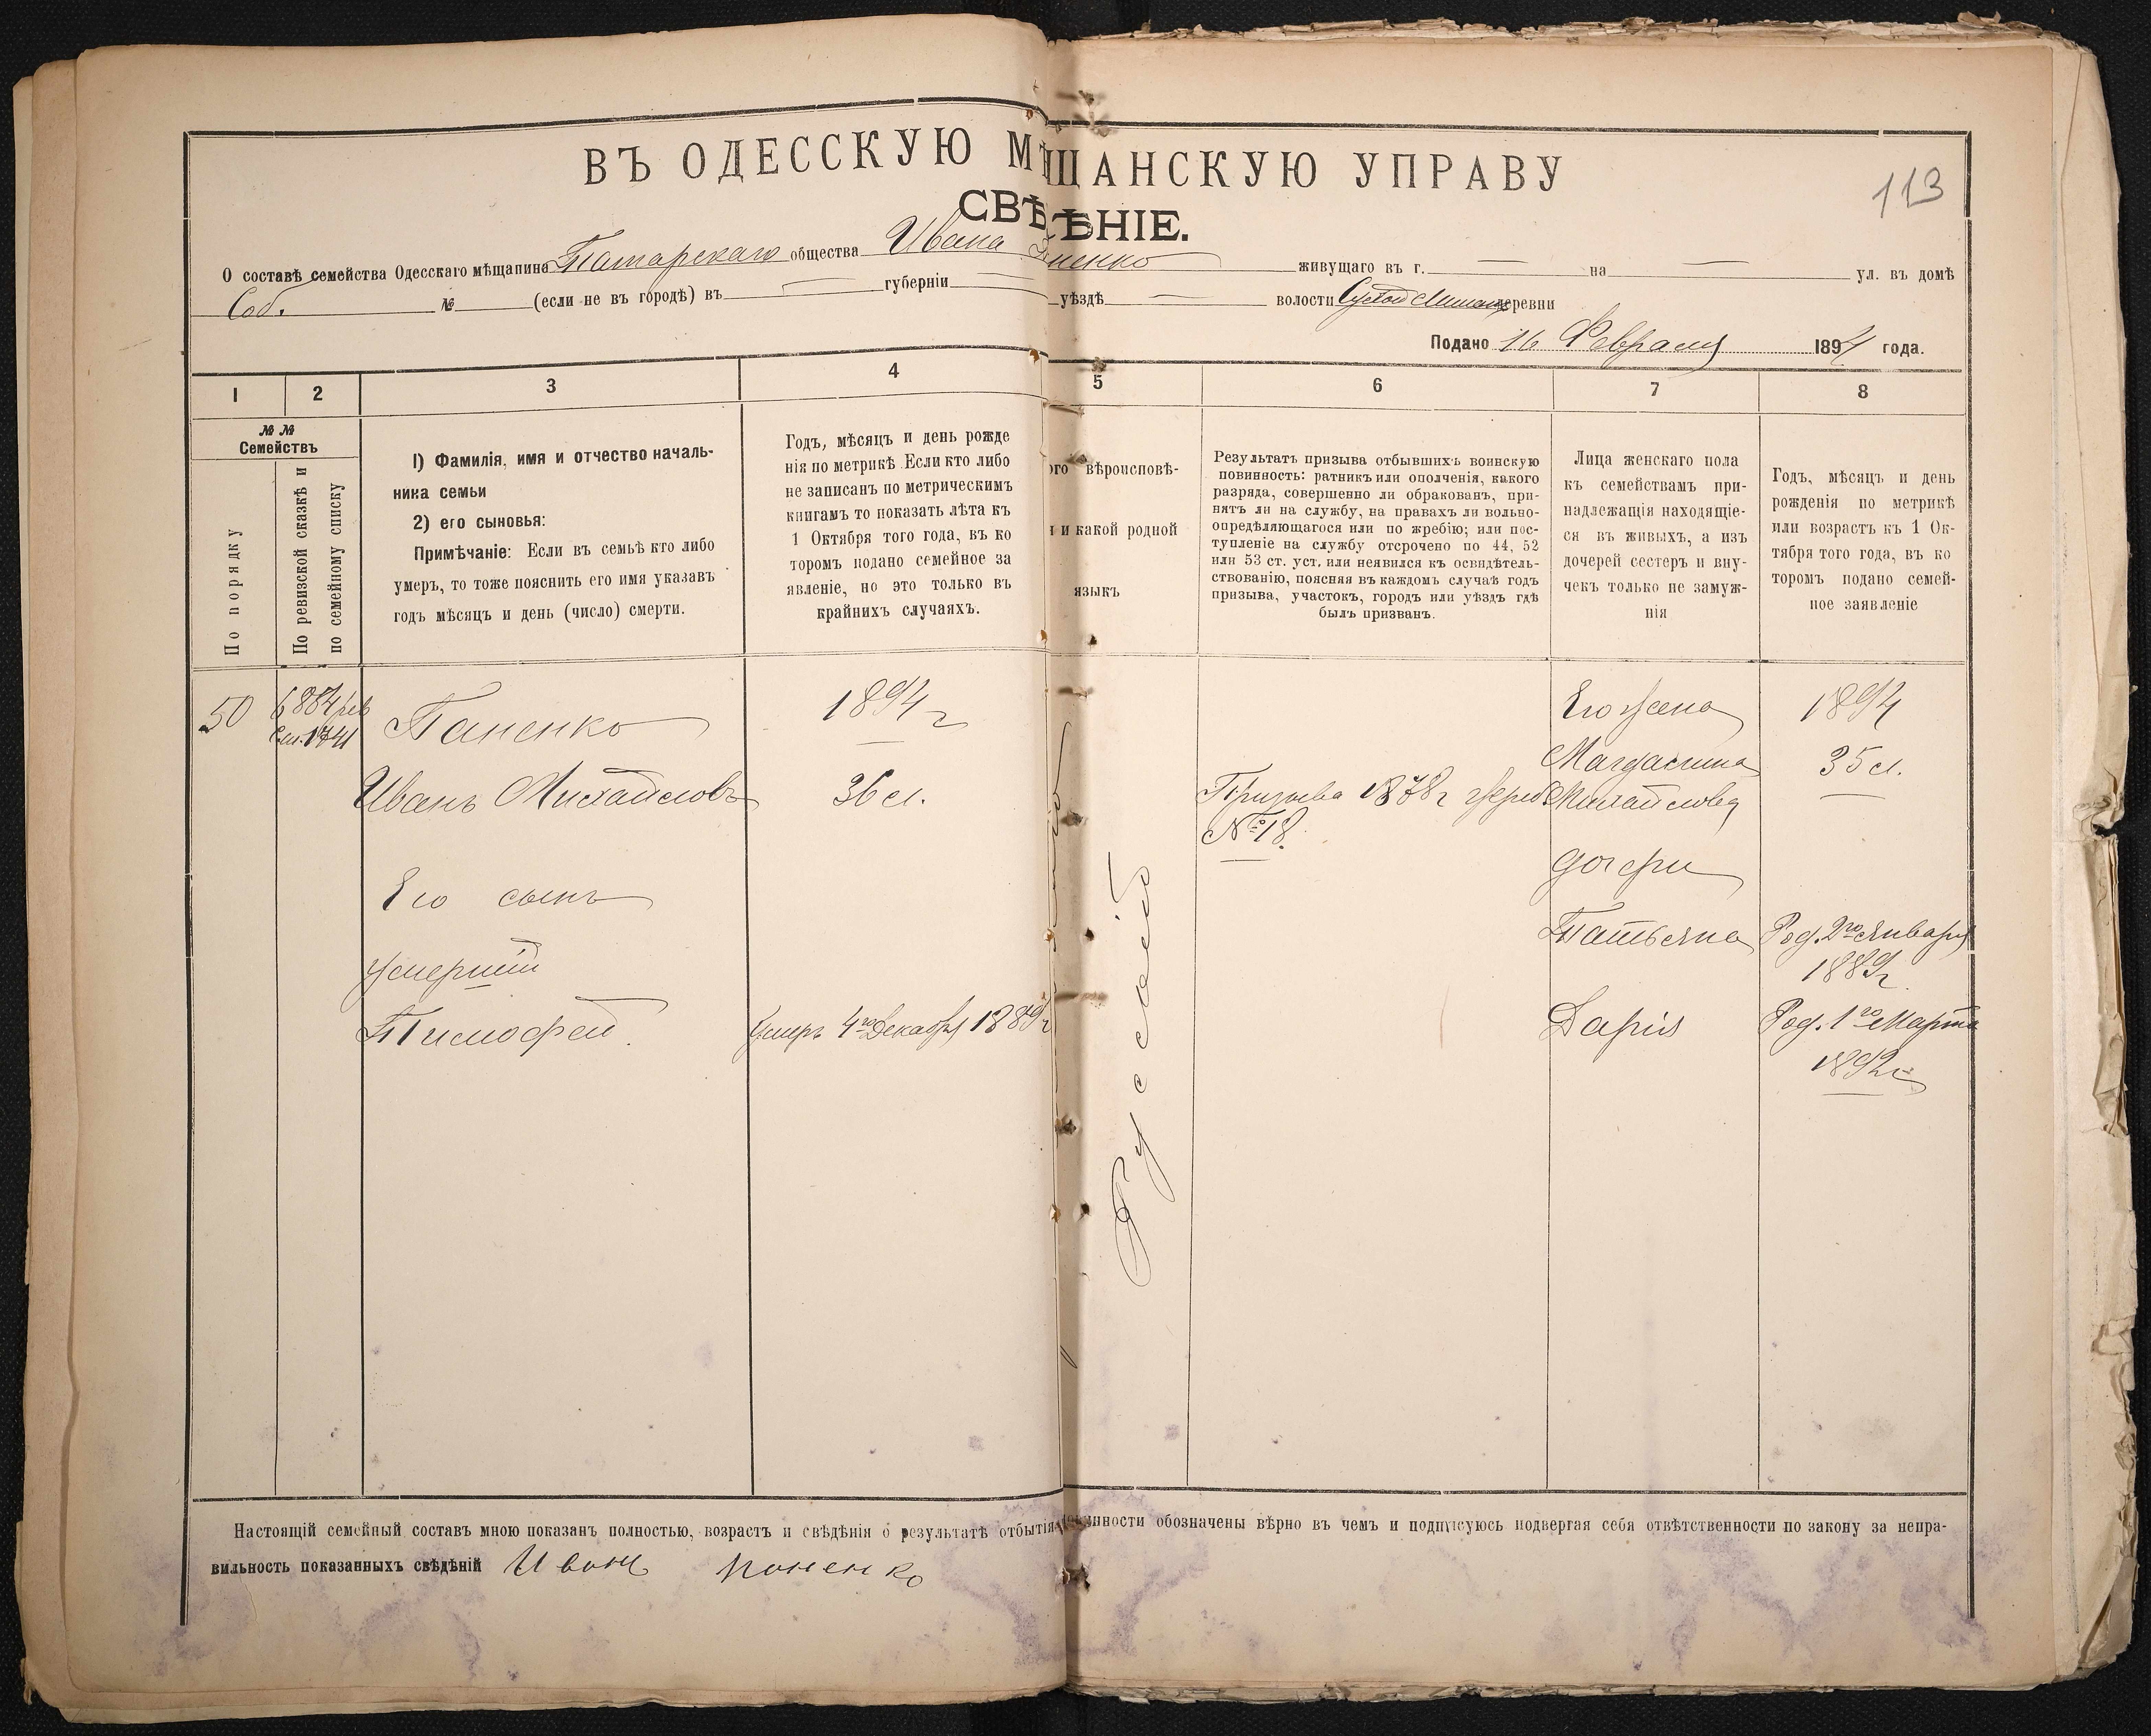 ВЪ ОДЕССКУЮ МѢЩАНСКУЮ УПРАВУ
113
СВѢДѢНІЕ.
О составѣ семейства Одесскаго мѣщанина Татарскаго общества Ивана Паненко живущаго въ г. — на — ул. въ домѣ
Соб. № (если не въ городѣ) въ — губерніи — уѣздѣ — волости Сухой деревни
Подано 16 Февраля 1894 года.
1 2 3 4 5 6 7 8
№ №
Семействъ
По порядку
По ревизской сказкѣ и
по семейному списку
1) Фамилія, имя и отчество началь-
ника семьи
2) его сыновья:
Примѣчаніе: Если въ семьѣ кто либо
умеръ, то тоже пояснить его имя указавъ
годъ мѣсяцъ и день (число) смерти.
Годъ, мѣсяцъ и день рожде
нія по метрикѣ. Если кто либо
не записанъ по метрическимъ
книгамъ то показать лѣта къ
1 Октября того года, въ ко
торомъ подано семейное за
явленіе, но это только въ
крайнихъ случаяхъ.
вѣроисповѣ-
и какой родной
языкъ
Результатъ призыва отбывшихъ воинскую
повинность: ратникъ или ополченія, какого
разряда, совершенно ли обракованъ, при-
нятъ ли на службу, на правахъ ли вольно-
опредѣляющагося или по жребію; или пос-
тупленіе на службу отсрочено по 44, 52
или 53 ст. уст. или неявился къ освидѣтель-
ствованію, поясняя въ каждомъ случаѣ годъ
призыва, участокъ, городъ или уѣздъ гдѣ
былъ призванъ.
Лица женскаго пола
къ семействамъ при-
надлежащія находящіе-
ся въ живыхъ, а изъ
дочерей сестеръ и вну-
чекъ только не замуж-
нія
Годъ, мѣсяцъ и день
рожденія по метрикѣ
или возрастъ къ 1 Ок-
тября того года, въ ко
торомъ подано семей-
ное заявленіе
50
6884 рев
Сем. 1741
Паненко
Иванъ Михайловъ
Его сынъ
умершій
Тимофей.
1894 г
36 л.
Умеръ 4го Декабря 1889 г
Русскій
Призыва 1878 г жреб
№ 18.
Его жена
Магдалина
Михайлова
дочери
Татьяна
Дарія
1894
35 л.
Род. 2го Января
1889 г.
Род. 1го Марта
1892 г
Настоящій семейный составъ мною показанъ полностью, возрастъ и свѣдѣнія о результатѣ отбытія повинности обозначены вѣрно въ чемъ и подписуюсь подвергая себя отвѣтственности по закону за непра-
вильность показанныхъ свѣдѣній Иванъ Паненко